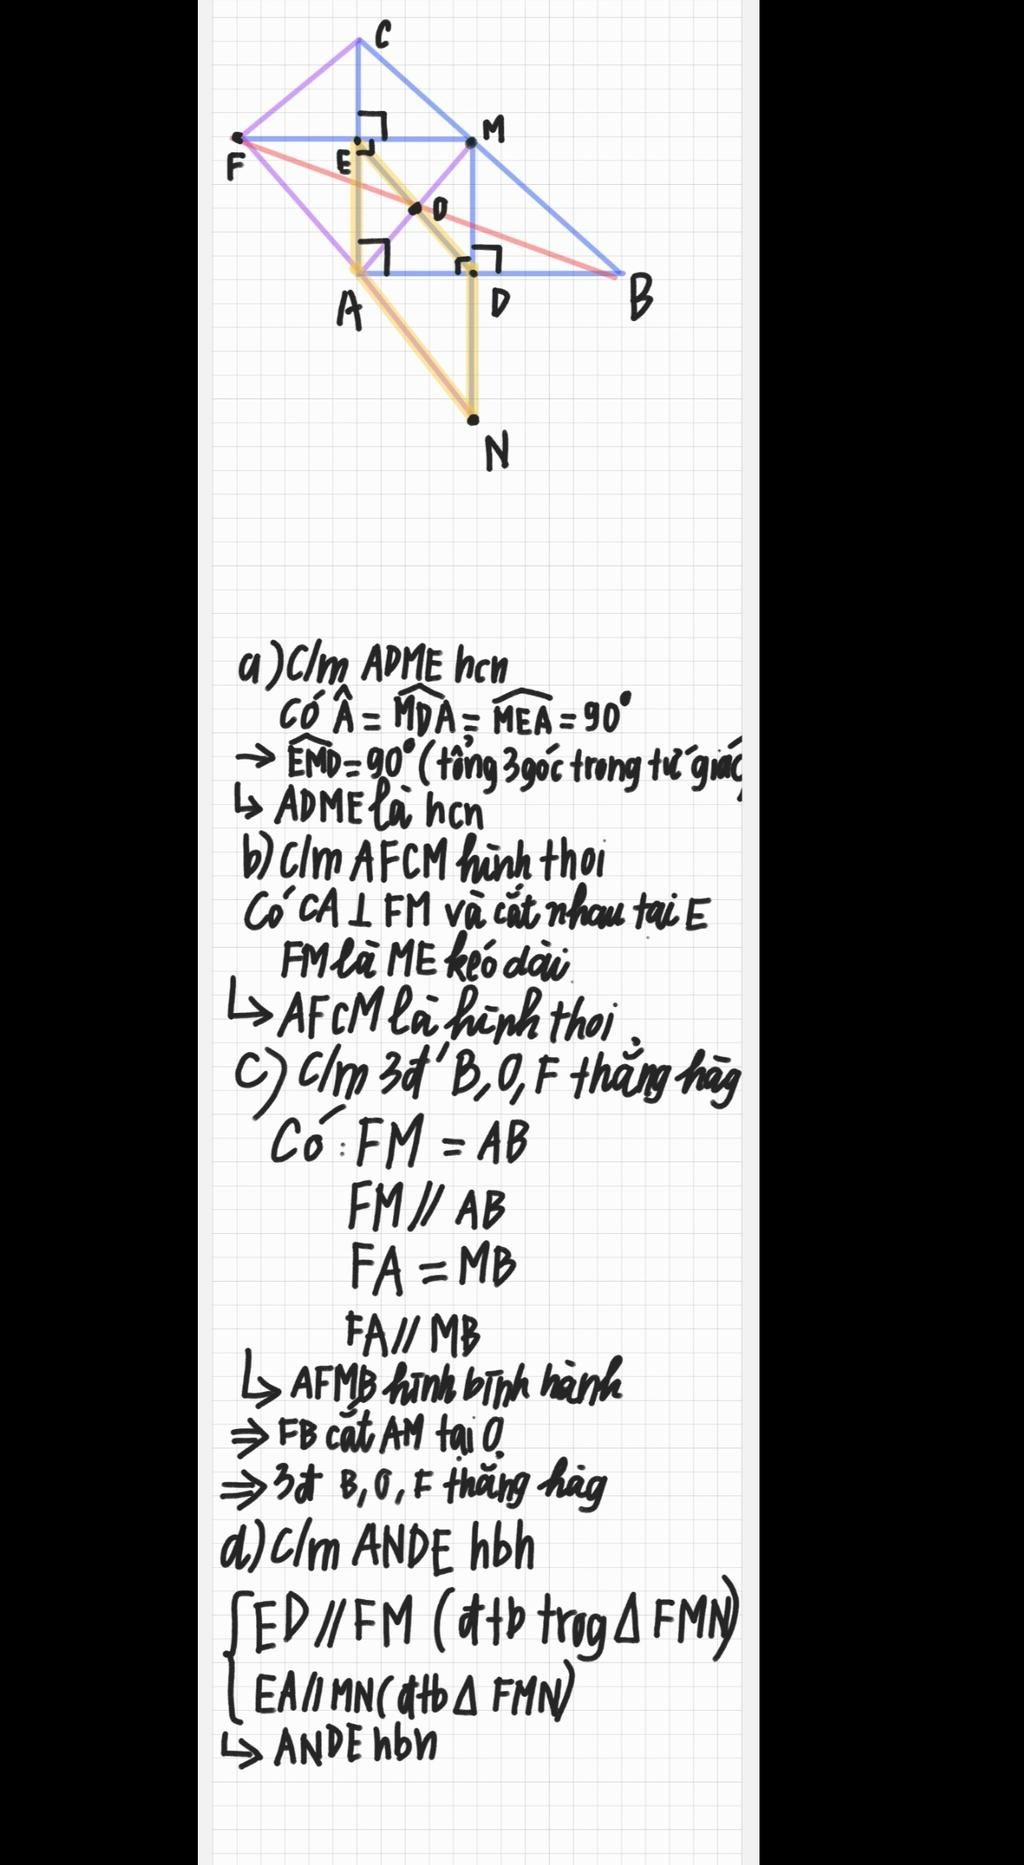 C
M
F
E
O
A
D
B
N
a) C/m ADME hcn
Có Â = MDA = MEA = 90°
→ EMD = 90° (tổng 3 góc trong tứ giác)
↳ ADME là hcn
b) C/m AFCM hình thoi
Có CA ⊥ FM và cắt nhau tại E
FM là ME kéo dài
↳ AFCM là hình thoi
c) C/m 3đ' B, O, F thẳng hàg
Có: FM = AB
FM // AB
FA = MB
FA // MB
↳ AFMB hình bình hành
⇒ FB cắt AM tại O
⇒ 3đ B, O, F thẳng hàg
d) C/m ANDE hbh
ED // FM (đtb trog Δ FMN)
EA // MN (đtb Δ FMN)
↳ ANDE hbh